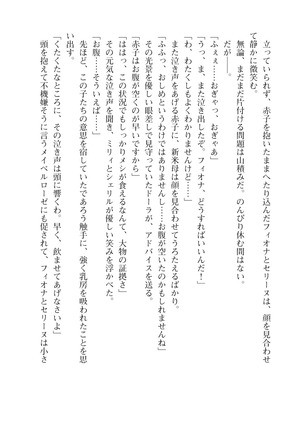 立っていられず、赤子を抱いたままへたり込んだフィオナとセリーヌは、顔を見合わせ
て静かに微笑む。
無論、まだまだ片付ける問題は山積みだ。のんびり休む間はない。
だが――。
「ふぇぇ……おぎゃっ、おぎゃあ」
「うっ、ま、また泣き出したぞ。フィオナ、どうすればいいんだ！」
「わ、わたくしもよくわかりませんけど……」
また泣き声をあげる赤子に、新米母は顔を見合わせてうろたえるばかり。
「ふふっ、おしめというわけではありませんし……お腹が空いたのかもしれませんね」
その光景を優しい眼差しで見守っていたドーラが、アドバイスを送る。
「赤子はお腹が空くのが早いですから」
「ははっ、この状況でもしっかりメシが食えるなんて、大物の証拠さ」
その元気な泣き声を聞き、ミリィとシェリルが優しい笑みを浮かべた。
「お腹……そういえば……」
先ほど、この子たちの意思を宿していたであろう触手に、強く乳房を吸われたことを思
い出す。
「くたくたなところに、その泣き声は頭に響くわ、早く、飲ませてあげなさいよ」
頭を抱えて不機嫌そうに言うメイベルローゼにも促されて、フィオナとセリーヌは小さ